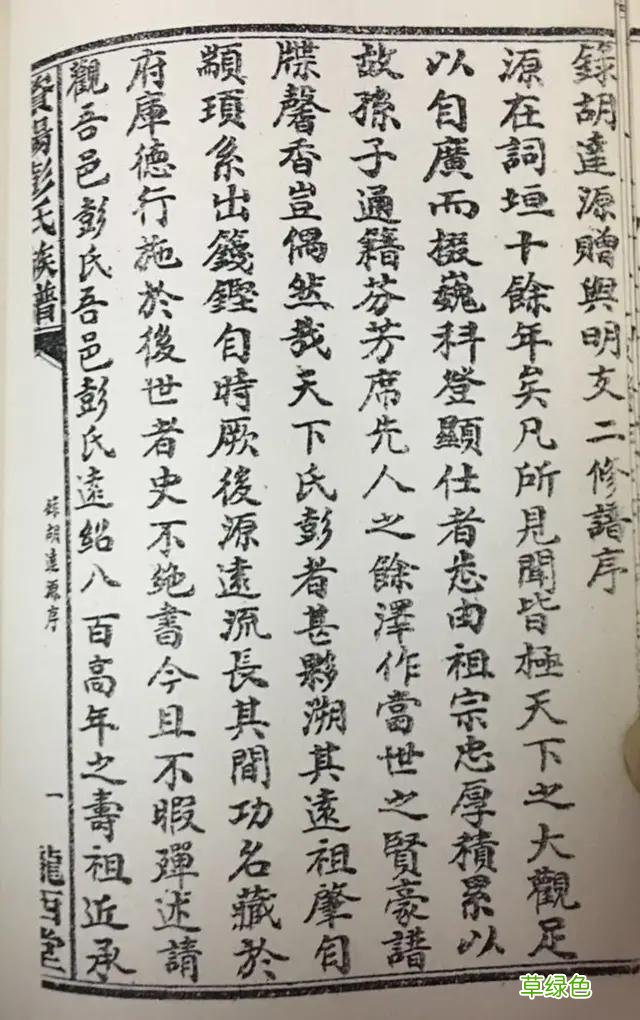 錄胡達源贈與明支二修譜序
源在詞垣十餘年矣凡所見聞皆極天下之大觀足
以自廣而掇巍科登顯仕者悉由祖宗忠厚積累以
故孫子通籍芬芳席先人之餘澤作當世之賢豪譜
牒馨香豈偶然哉天下氏彭者甚夥溯其遠祖肇自
顓頊系出籛鏗自時厥後源遠流長其間功名藏於
府庫德行施於後世者史不絶書今且不暇殫述請
觀吾邑彭氏吾邑彭氏遠紹八百高年之壽祖近承
資陽彭氏族譜
錄胡達源序
一
隴西堂
草绿色